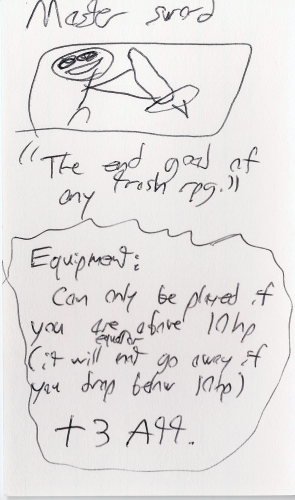 Master sword
"The end goal of
any trash rpg."
Equipment:
Can only be played if
you are equal or above 10hp
(it will not go away if
you drop below 10hp)
+3 Att.